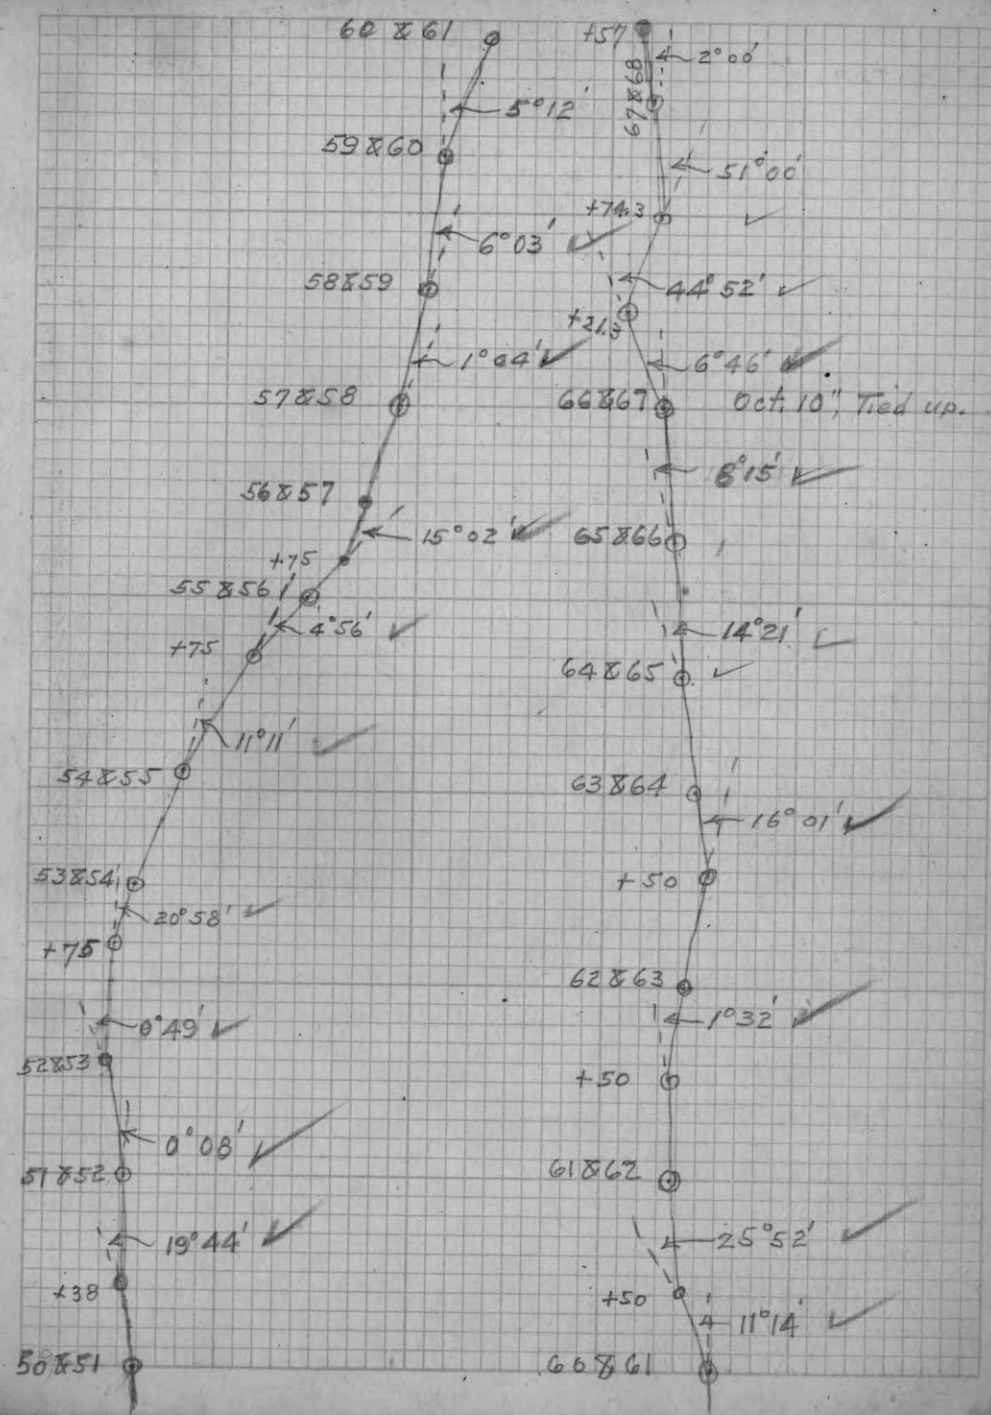 60 & 61
5°12'
59 & 60
6°03'
58 & 59
1°04'
57 & 58
56 & 57
15°02'
+75
55 & 56
4°56'
+75
11°11'
54 & 55
53 & 54
20°58'
+75
0°49'
52 & 53
0°08'
51 & 52
19°44'
+38
50 & 51
+57
2°00'
67 & 68
51°00'
+74.3
44°52'
+21.3
6°46'
66 & 67 Oct. 10", Tied up.
8°15'
65 & 66
14°21'
64 & 65
63 & 64
16°01'
+50
62 & 63
1°32'
+50
61 & 62
25°52'
+50
11°14'
60 & 61